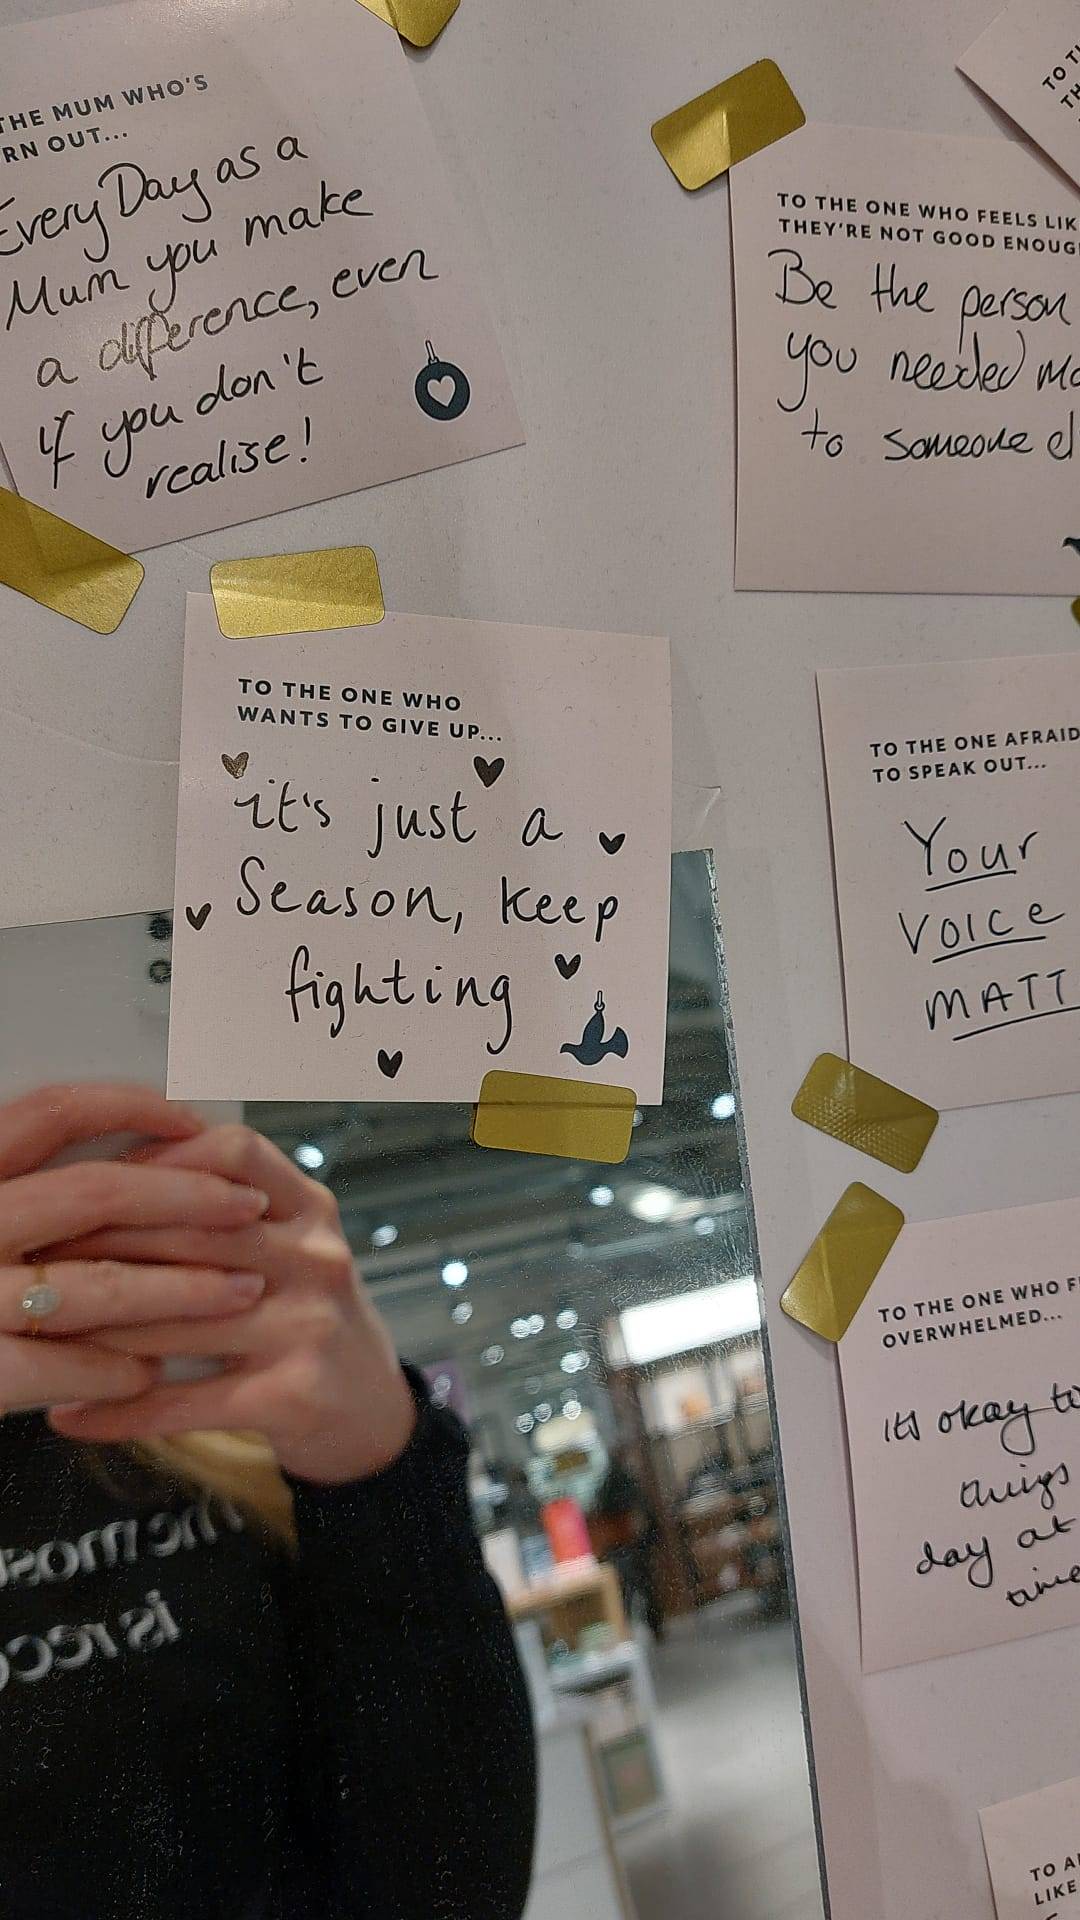 THE MUM WHO'S
OUT...
Every Day as a
Mum you make
a difference, even
if you don't
realise!
TO THE ONE WHO FEELS
THEY'RE NOT GOOD
Be the person
you needed
to someone
TO THE ONE WHO
WANTS TO GIVE UP...
it's just a
Season, keep
fighting
TO THE ONE AFRAID
TO SPEAK OUT...
Your
VOICE
TO THE ONE WHO
OVERWHELMED...
it's okay
things
day at
TO
LIKE
is